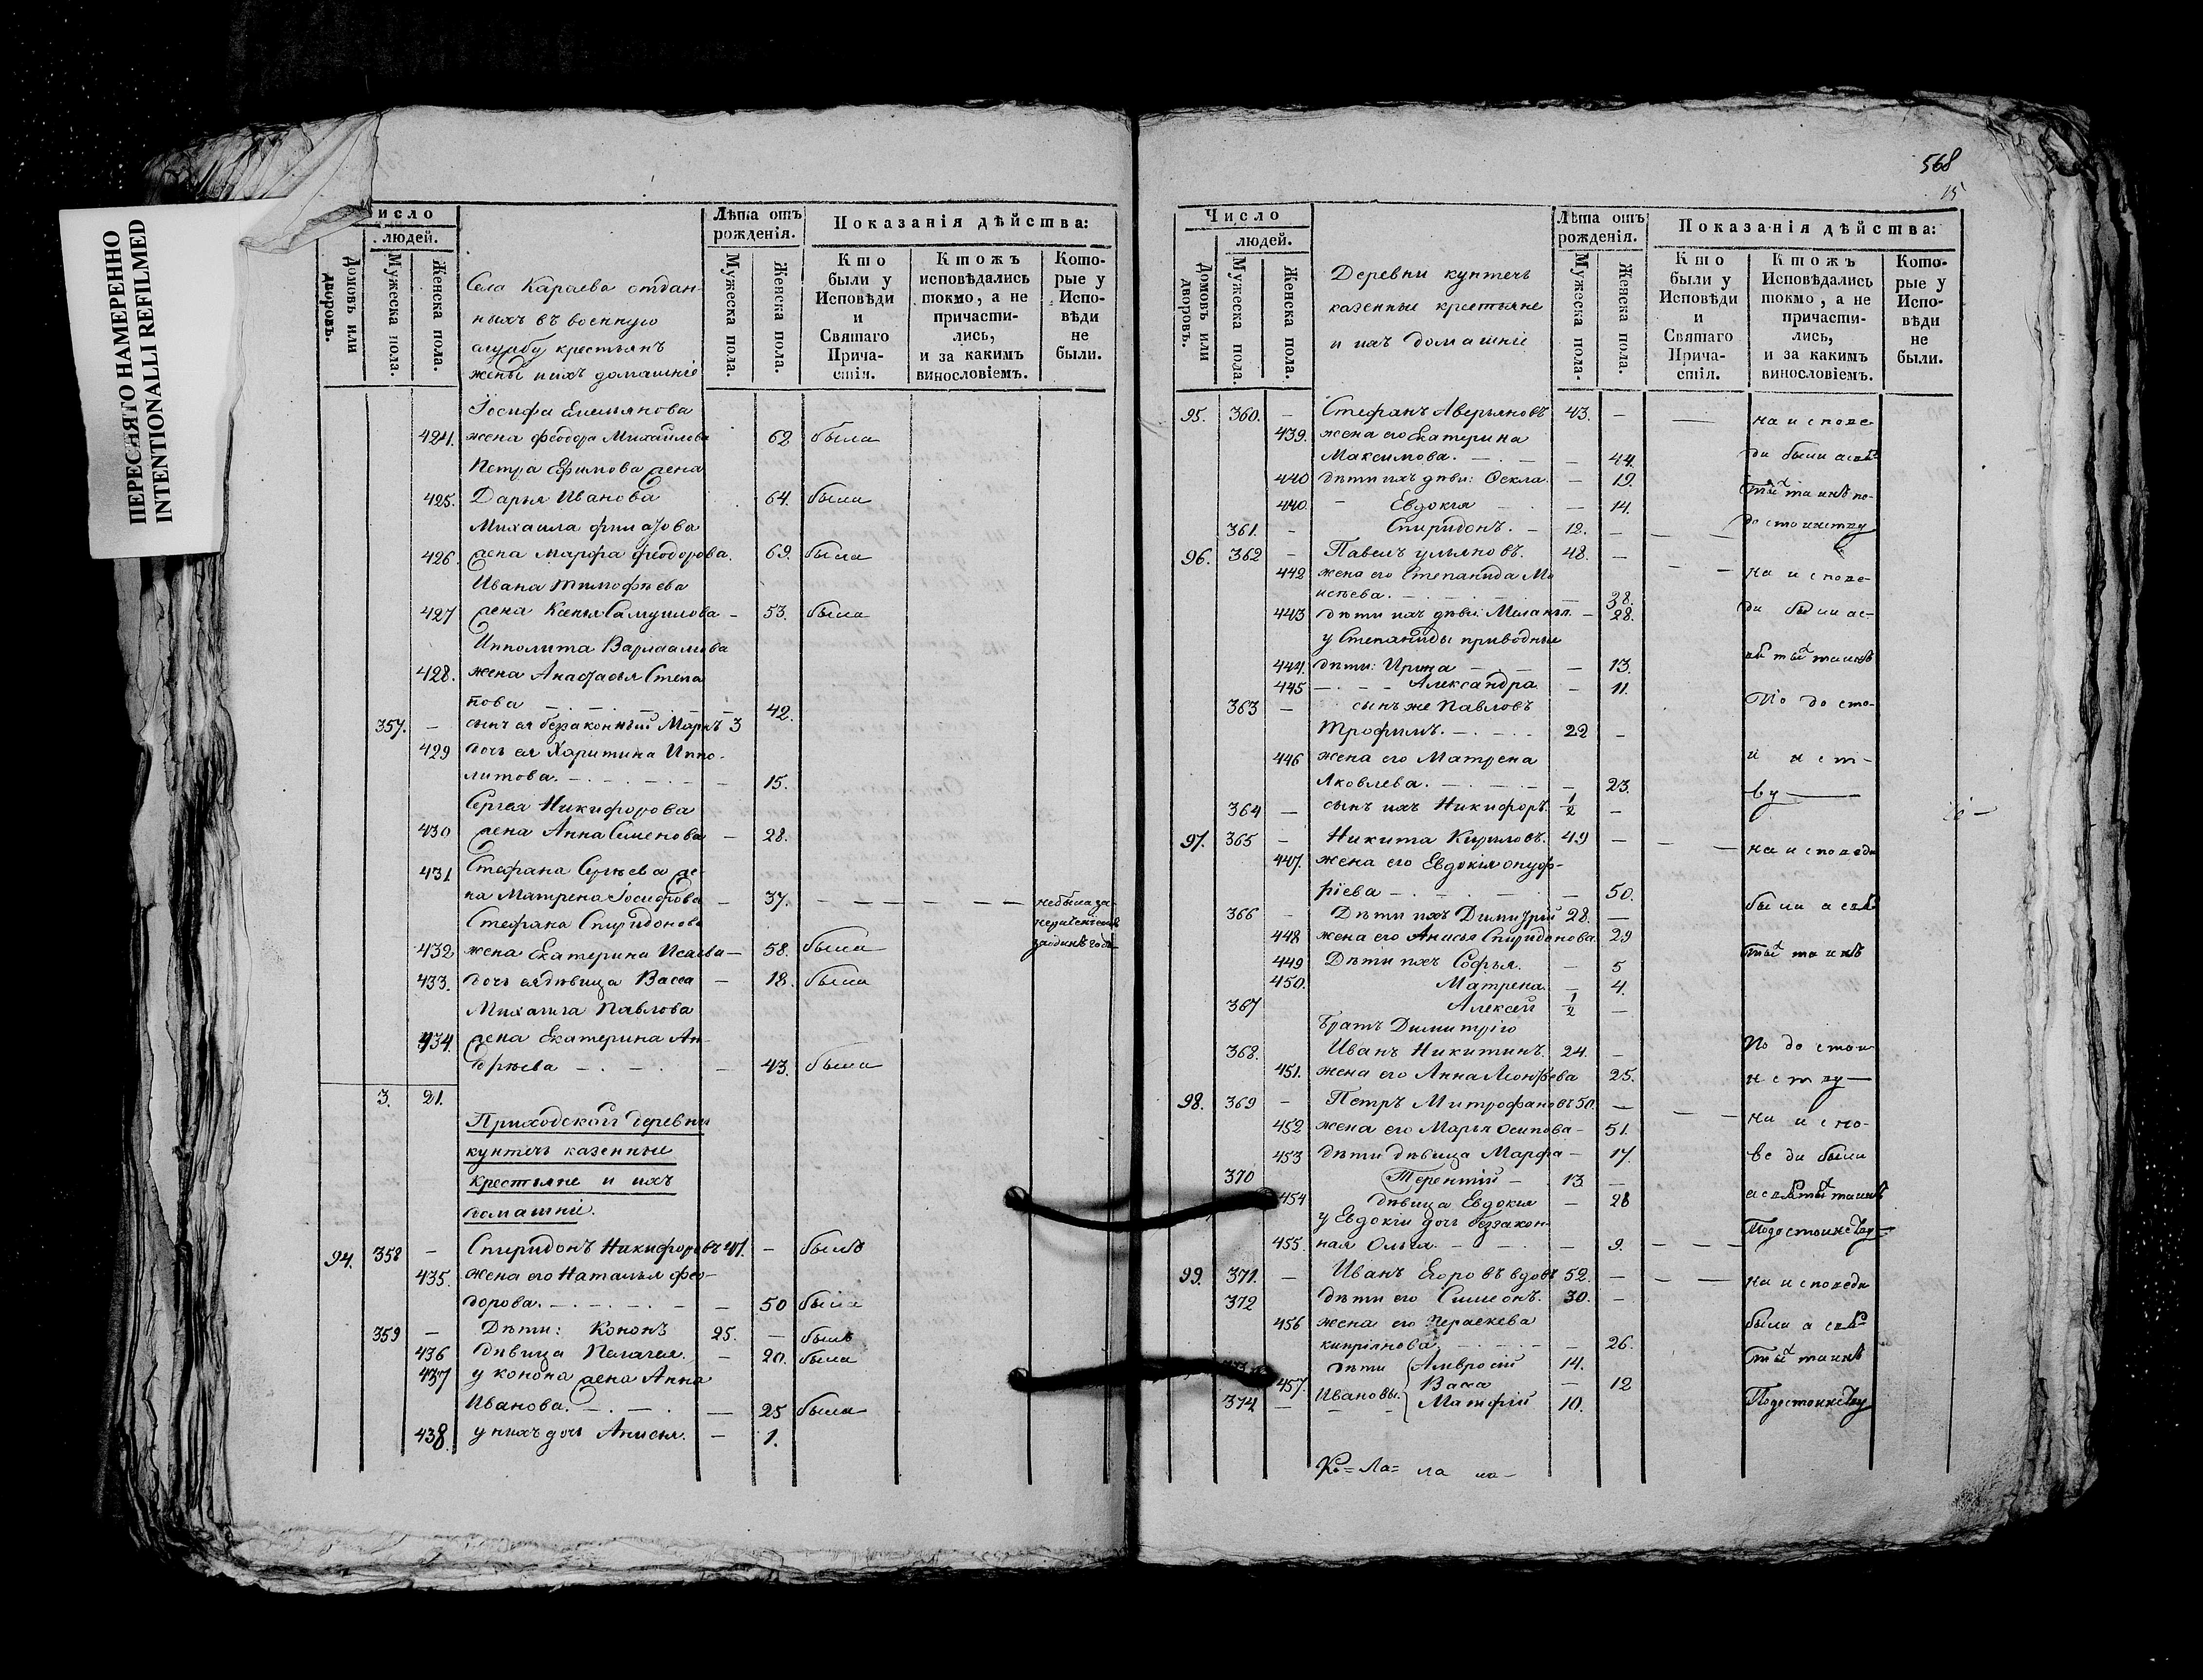 ПЕРЕСНЯТО НАМЕРЕННО
INTENTIONALLI REFILMED
исло
людей.
Домовъ или дворовъ.
Мужеска пола.
Женска пола.
Села Караева отдан-
ныхъ въ военную
службу крестьянъ
жены и ихъ домашніе
Лѣта отъ рожденія.
Мужеска пола.
Женска пола.
Показанія дѣйства:
Кто были у Исповѣди и Святаго Прича- стія.
Ктожъ исповѣдались токмо, а не причасти- лись, и за какимъ винословіемъ.
Кото- рые у Испо- вѣди не были.
Іосифа Емельянова
424. жена Феодора Михайлова 62 была
Петра Ефимова жена
425. Дарья Иванова 64. была
Михаила Филатова
426. жена Марфа Феодорова. 69. была
Ивана Тимофѣева
427 жена Ксенья Самуилова – 53. была
Ипполита Варлаамова
428. жена Анастасья Степа
нова 42.
357. – сынъ ея беззаконный Маркъ 3
429 дочь ея Харитина Иппо-
литова. – 15.
Сергея Никифорова
430 жена Анна Семенова – 28.
431 Стефана Сергѣева же-
на Матрена Іосифова – 37. – – – – – не была за
Стефана Спиридонова
432 жена Екатерина Исаева – 58. была
433. дочь ея дѣвица Васса – 18. была
Михаила Павлова
434. жена Екатерина Ан-
дрѣева – 43. была
3. 21.
Приходской деревни
кунтечь казенные
крестьяне и ихъ
домашніе.
94. 358 – Спиридонъ Никифоровъ 47. – былъ
435. жена его Наталья Фео-
дорова. – 50 была
359 – Дѣти: Кононъ 25. – былъ
436 дѣвица Пелагея. – 20. была
437 у Конона жена Анна
Иванова. – 25 была
438. у нихъ дочь Анисья. – 1.
568
15
Число
людей.
Домовъ или дворовъ.
Мужеска пола.
Женска пола.
Деревни кунтечь
казенные крестьяне
и ихъ домашніе
Лѣта отъ рожденія.
Мужеска пола.
Женска пола.
Показанія дѣйства:
Кто были у Исповѣди и Святаго Прича- стія.
Ктожъ Исповѣдались токмо, а не причасти- лись, и за какимъ винословіемъ.
Кото- рые у Испо- вѣди не были.
95. 360. – Стефанъ Аверьяновъ 43. – — на испове-
439. жена его Екатерина
Максимова. – 44. ди были а свѣ-
440 дѣти ихъ дѣви: Ѳекла – 19. тых таинъ по-
440. – Евдокія – 14.
361. – Спиридонъ. – 12. – достоинству
96. 362 – Павелъ Ульяновъ. 48. –
442 жена его Степанида Мо на испове-
исѣева. – 38.
443 дѣти ихъ дѣви: Меланья. – 28. ди были а с-
у Степаниды приводные
444. дѣти: Ирина – 13. вѣтых таинъ
445 – Александра – 11.
363 – сынъ же Павловъ По досто-
Трофимъ. – 22 –
446 жена его Матрена и нст-
Яковлева. – 23.
364 – сынъ ихъ Никифоръ. 1/2 – ву —
97. 365 – Никита Кириловъ. 49 – на исповеди
447. жена его Евдокія Онуф-
ріева – 50.
366 – Дѣти ихъ Димитрій 28. – были а свѣ
448 жена его Анисья Спиридонова. 29
449 Дѣти ихъ Софья. – 5 тых таинъ
450. Матрена. – 4.
367 Алексей 1/2 –
Братъ Димитріго
368. Иванъ Никитинъ. 24. – По достои
451. жена его Анна Леонтьева 25. нству —
98. 369 – Петръ Митрофановъ 50. – на испо-
452 жена его Марья Осипова – 51.
453 дѣти дѣвица Марфа – 17. веди были
370 Терентій – 13 –
454 дѣвица Евдокия – 28 а свѣтых таинъ
у Евдокіи дочь беззакон-
455. ная Ольга. – 9. – – – По достоинству
99. 371. – Иванъ Егоровъ вдовъ 52. – на исповеди
372 дѣти его Симеонъ. 30. –
456 жена его Параскева были а свѣ
киприянова. – 26.
дѣти Амвросій 14. тых таинъ
457. Ивановы. Васса – 12
374 – Матфій 10. По достоинству